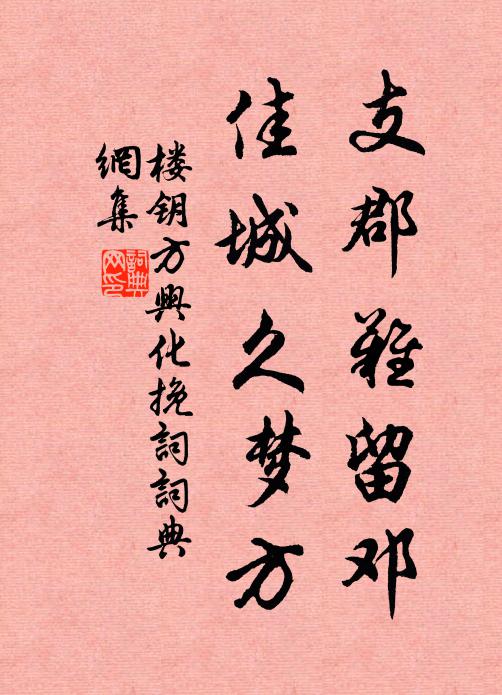 支郡难留邓
佳城久梦方
楼钥方興化挽詞詞典
網集
詞典网印